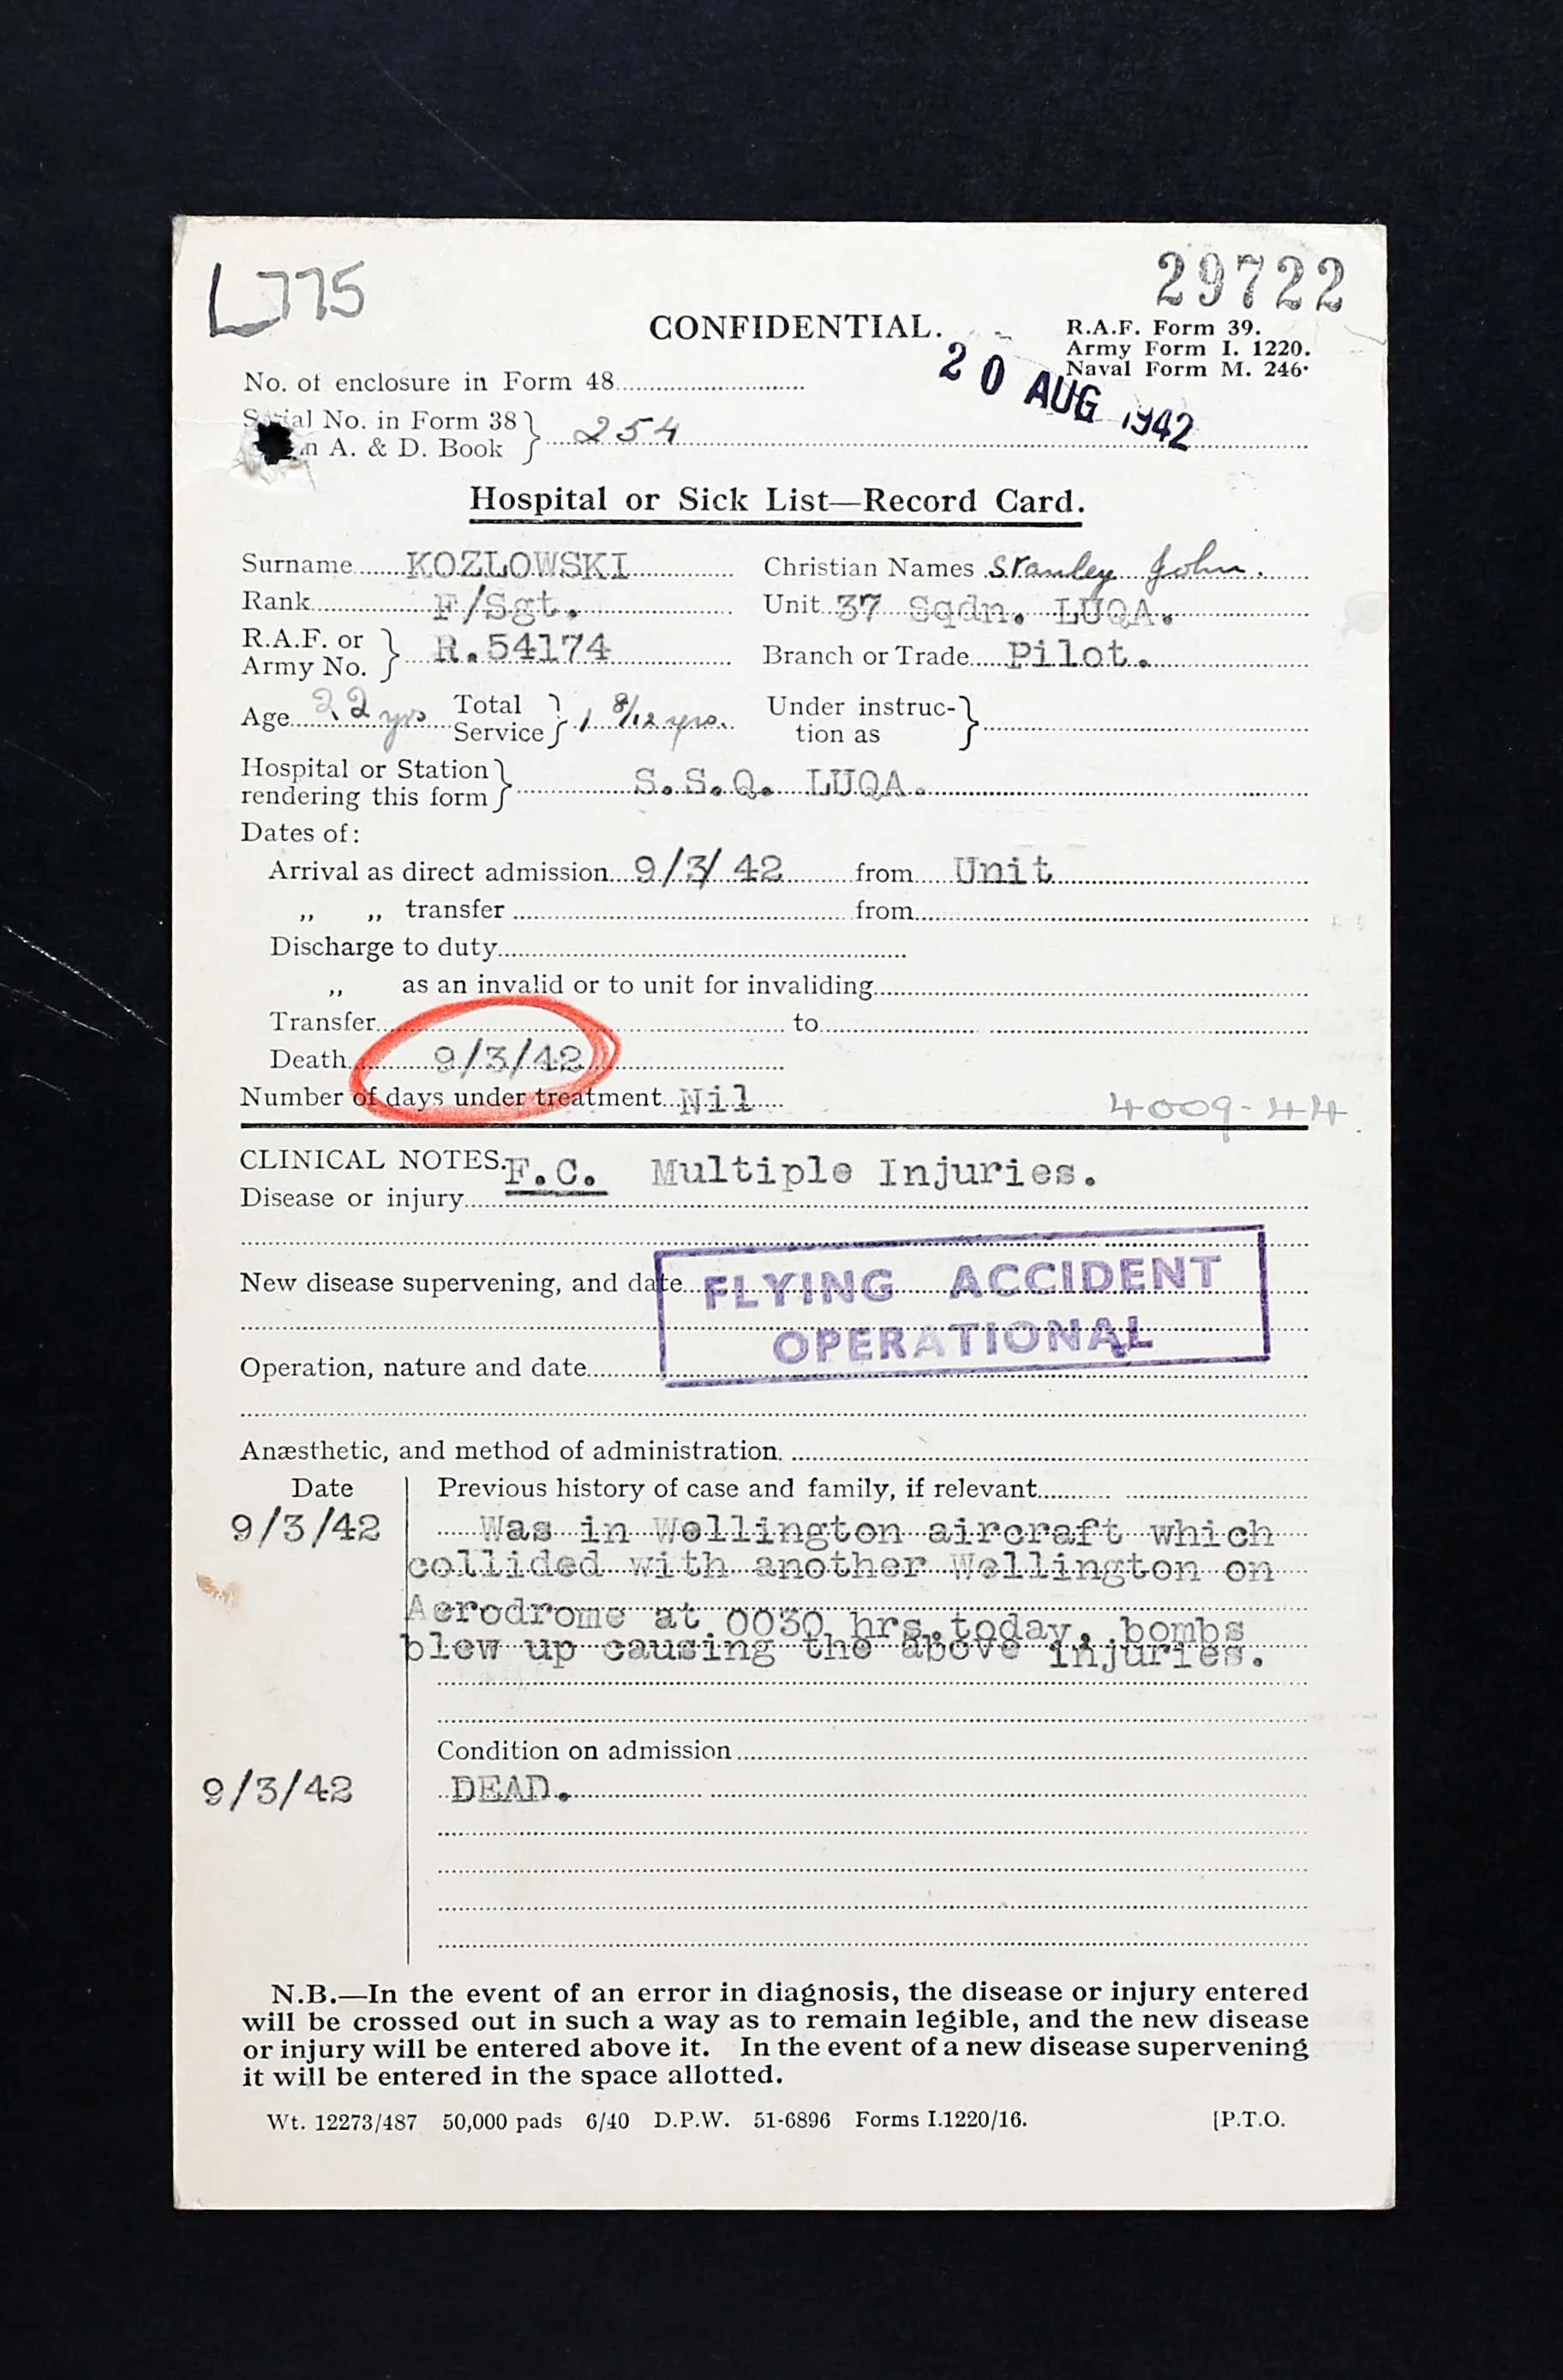 L775
29722
CONFIDENTIAL.
R.A.F. Form 39.
Army Form I. 1220.
Naval Form M. 246.
20 AUG 1942
No. of enclosure in Form 48
Serial No. in Form 38
in A. & D. Book } 254
Hospital or Sick List—Record Card.
Surname KOZLOWSKI Christian Names Stanley John.
Rank F/Sgt. Unit 37 Sqdn. LUQA.
R.A.F. or
Army No. } R.54174 Branch or Trade Pilot.
Age 22 yrs Total
Service } 1 8/12 yrs. Under instruc-
tion as }
Hospital or Station
rendering this form } S.S.Q. LUQA.
Dates of:
Arrival as direct admission 9/3/42 from Unit
„ „ transfer from
Discharge to duty
„ as an invalid or to unit for invaliding
Transfer to
Death 9/3/42
Number of days under treatment Nil
4009-44
CLINICAL NOTES. F.C. Multiple Injuries.
Disease or injury
New disease supervening, and date
FLYING ACCIDENT
OPERATIONAL
Operation, nature and date
Anæsthetic, and method of administration.
Date Previous history of case and family, if relevant
9/3/42 Was in Wellington aircraft which
collided with another Wellington on
Aerodrome at 0030 hrs. today, bombs
blew up causing the above injuries.
Condition on admission
9/3/42 DEAD.
N.B.—In the event of an error in diagnosis, the disease or injury entered
will be crossed out in such a way as to remain legible, and the new disease
or injury will be entered above it. In the event of a new disease supervening
it will be entered in the space allotted.
Wt. 12273/487 50,000 pads 6/40 D.P.W. 51-6896 Forms I.1220/16. [P.T.O.